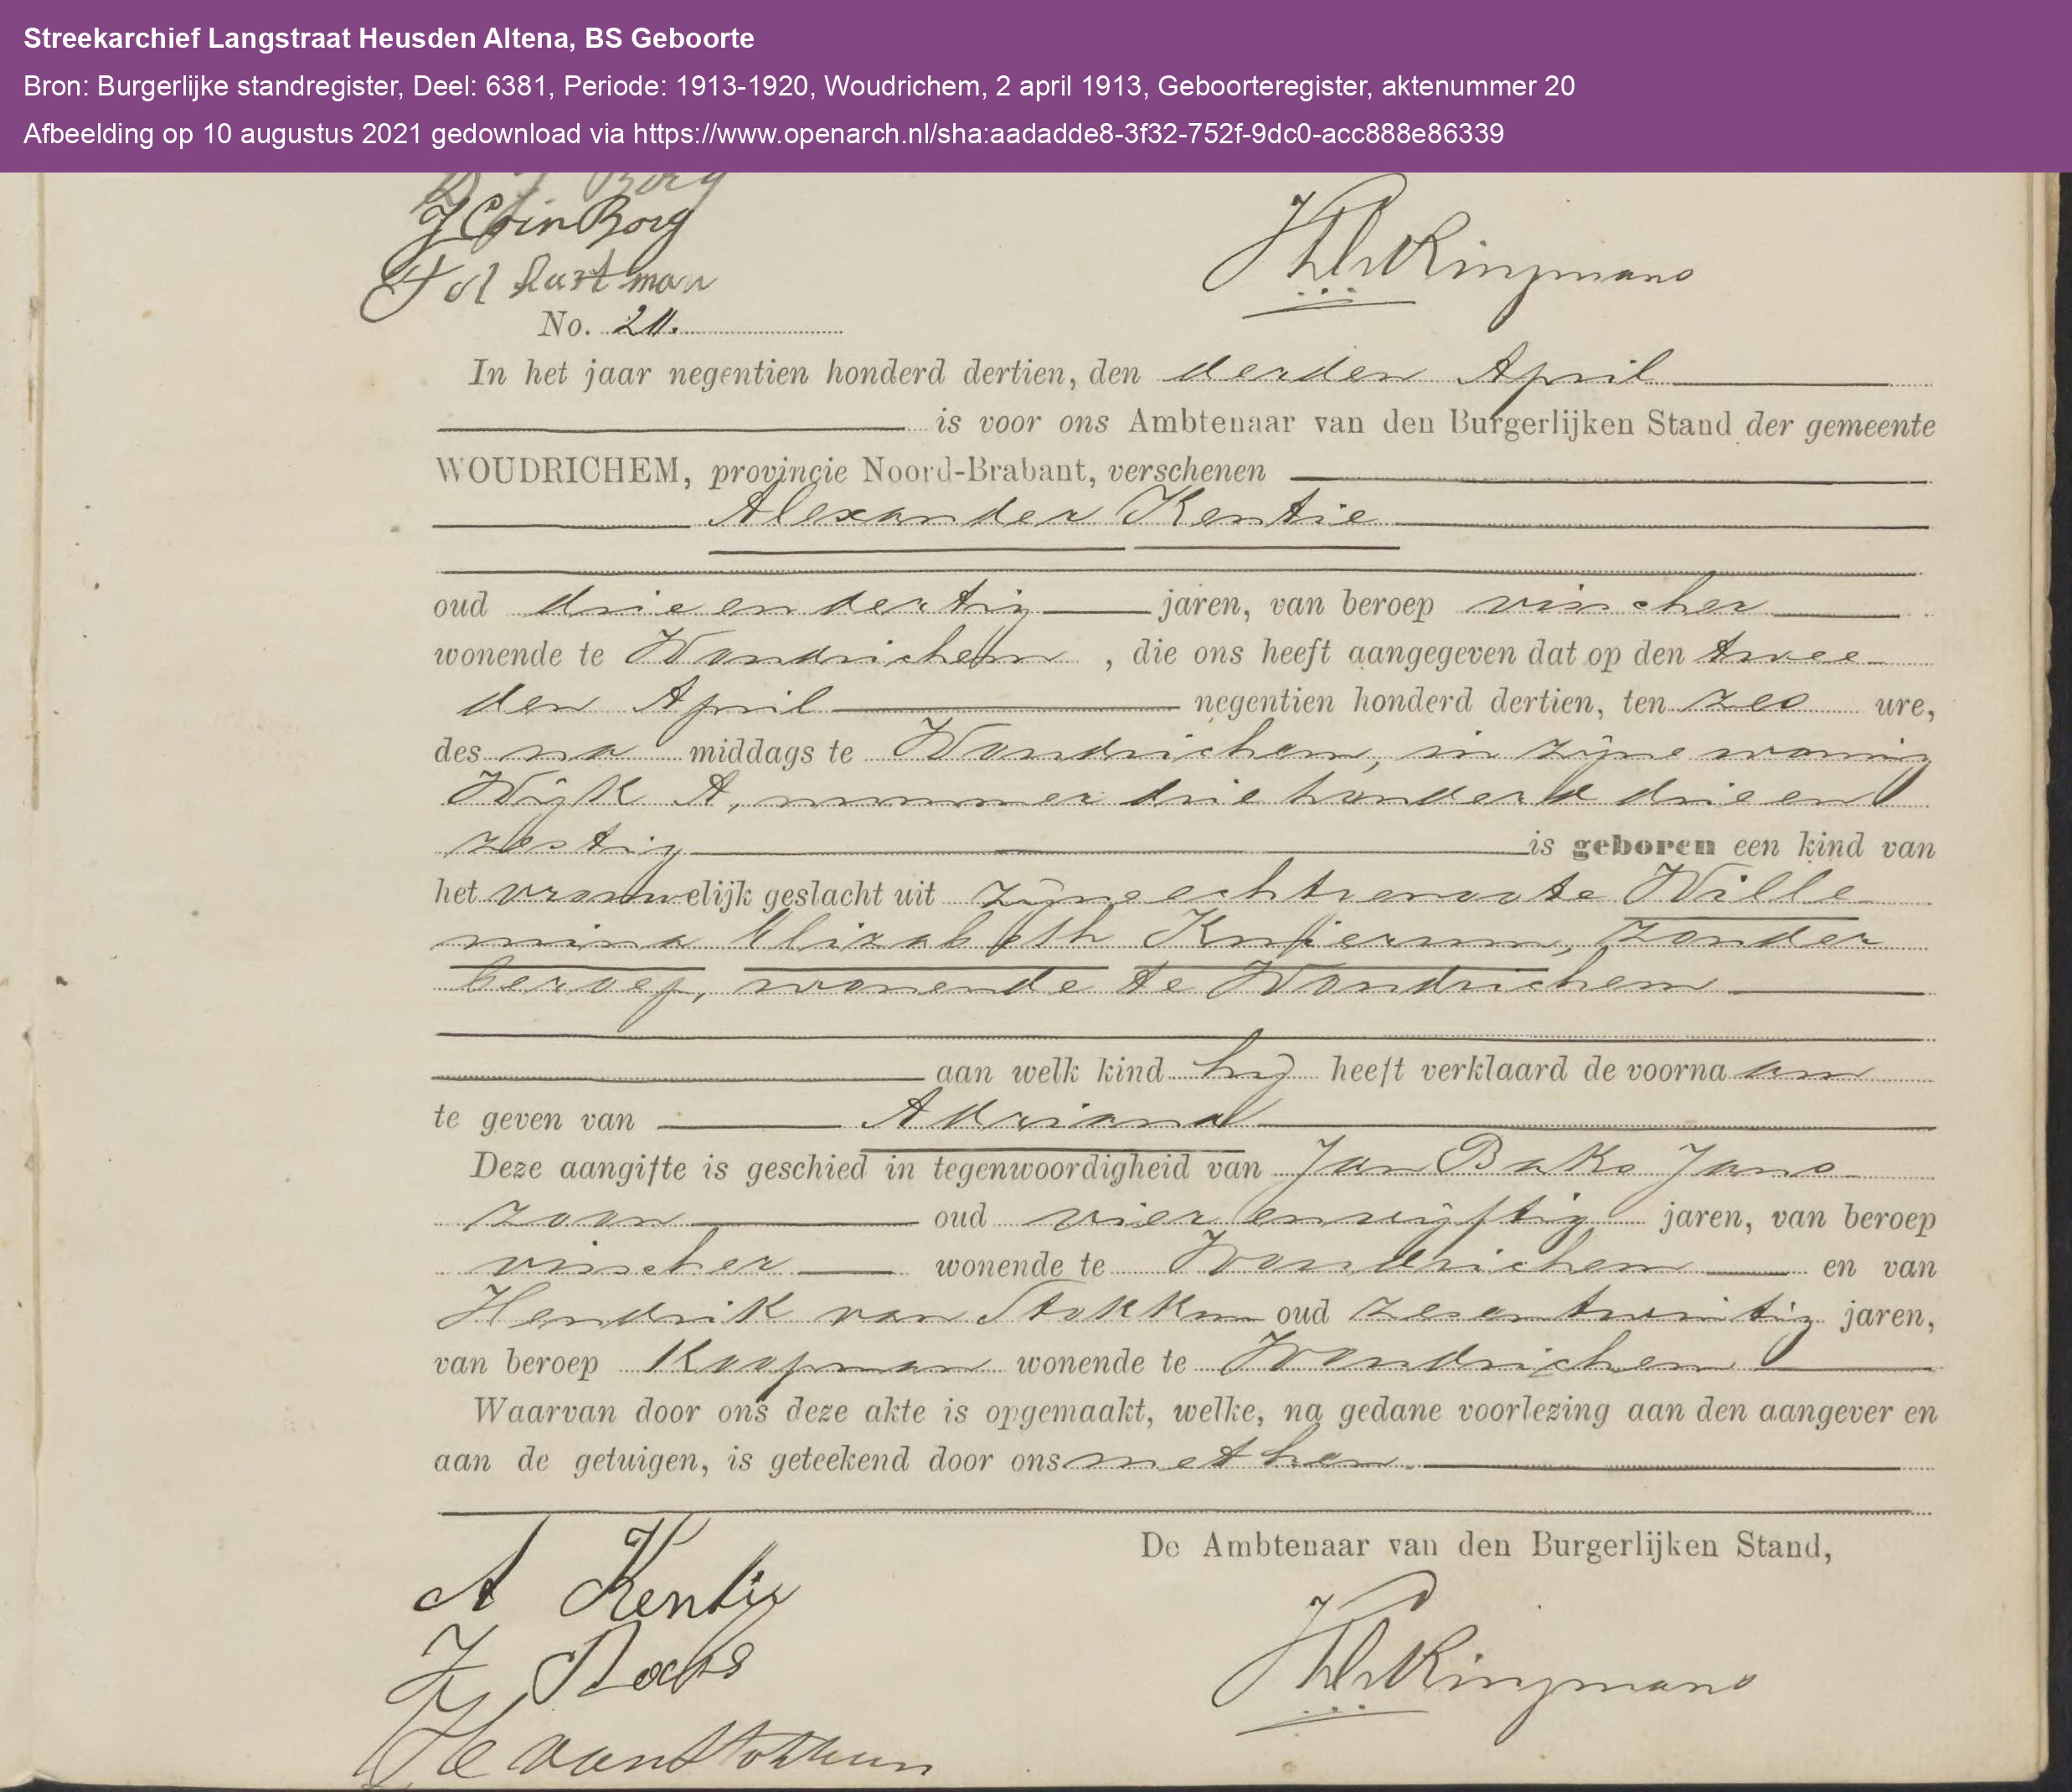 Streekarchief Langstraat Heusden Altena, BS Geboorte
Bron: Burgerlijke standregister, Deel: 6381, Periode: 1913-1920, Woudrichem, 2 april 1913, Geboorteregister, aktenummer 20
Afbeelding op 10 augustus 2021 gedownload via https://www.openarch.nl/sha:aadadde8-3f32-752f-9dc0-acc888e86339
Borg
No.
In het jaar negentien honderd dertien, den derden April
is voor ons Ambtenaar van den Burgerlijken Stand der gemeente
WOUDRICHEM, provincie Noord-Brabant, verschenen
Alexander Kentie
oud drie en dertig jaren, van beroep visscher
wonende te Woudrichem, die ons heeft aangegeven dat op den twee
den April negentien honderd dertien, ten zes ure,
des na middags te Woudrichem, in zijne woning
Wijk A, nummer driehonderd drie en
zestig is geboren een kind van
het vrouwelijk geslacht uit zijne echtgenoote Wille
mina Elizabeth zonder
beroep, wonende te Woudrichem
aan welk kind hij heeft verklaard de voornaam
te geven van Adriana
Deze aangifte is geschied in tegenwoordigheid van Jan Baks Jans
zoon oud vier en vijftig jaren, van beroep
visscher wonende te Woudrichem en van
Hendrik van Stokkum oud zesentwintig jaren,
van beroep Koopman wonende te Woudrichem
Waarvan door ons deze akte is opgemaakt, welke, na gedane voorlezing aan den aangever en
aan de getuigen, is geteekend door ons met hen.
De Ambtenaar van den Burgerlijken Stand,
A Kentie
J Baks
H van Stokkum